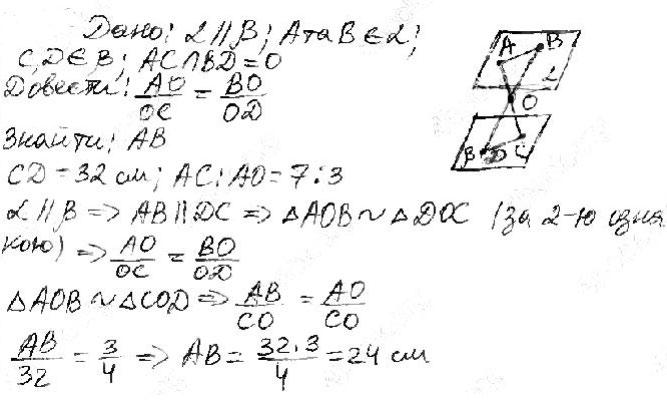 Дано: α∥β; A та B ∈ α;
C, D ∈ β; AC ∩ BD = O
Довести: AO/OC = BO/OD
Знайти: AB
CD = 32 см; AC : AO = 7 : 3
α∥β => AB∥DC => △AOB ~ △DOC (за 2-ю озна
кою) => AO/OC = BO/OD
△AOB ~ △COD => AB/CO = AO/CO
AB/32 = 3/4 => AB = 32·3/4 = 24 см
A
B
α
O
β
D
C